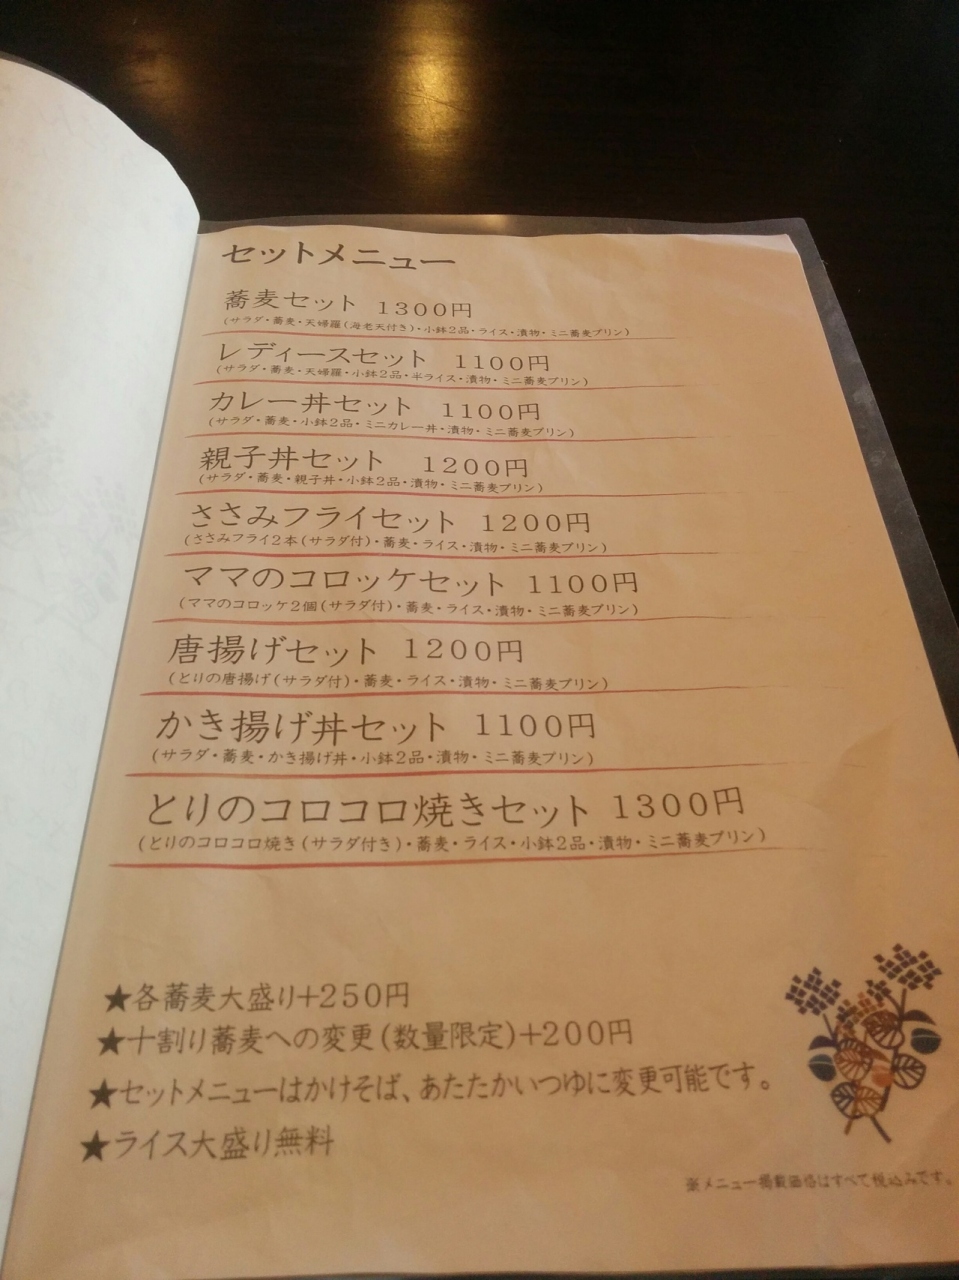 セットメニュー
蕎麦セット 1300円
(サラダ・蕎麦・天婦羅(海老天付き)・小鉢2品・ライス・漬物・ミニ蕎麦プリン)
レディースセット 1100円
(サラダ・蕎麦・天婦羅・小鉢2品・半ライス・漬物・ミニ蕎麦プリン)
カレー丼セット 1100円
(サラダ・蕎麦・小鉢2品・ミニカレー丼・漬物・ミニ蕎麦プリン)
親子丼セット 1200円
(サラダ・蕎麦・親子丼・小鉢2品・漬物・ミニ蕎麦プリン)
ささみフライセット 1200円
(ささみフライ2本(サラダ付)・蕎麦・ライス・漬物・ミニ蕎麦プリン)
ママのコロッケセット 1100円
(ママのコロッケ2個(サラダ付)・蕎麦・ライス・漬物・ミニ蕎麦プリン)
唐揚げセット 1200円
(とりの唐揚げ(サラダ付)・蕎麦・ライス・漬物・ミニ蕎麦プリン)
かき揚げ丼セット 1100円
(サラダ・蕎麦・かき揚げ丼・小鉢2品・漬物・ミニ蕎麦プリン)
とりのコロコロ焼きセット 1300円
(とりのコロコロ焼き(サラダ付き)・蕎麦・ライス・小鉢2品・漬物・ミニ蕎麦プリン)
★各蕎麦大盛り+250円
★十割り蕎麦への変更(数量限定)+200円
★セットメニューはかけそば、あたたかいつゆに変更可能です。
★ライス大盛り無料
※メニュー掲載価格はすべて税込みです。